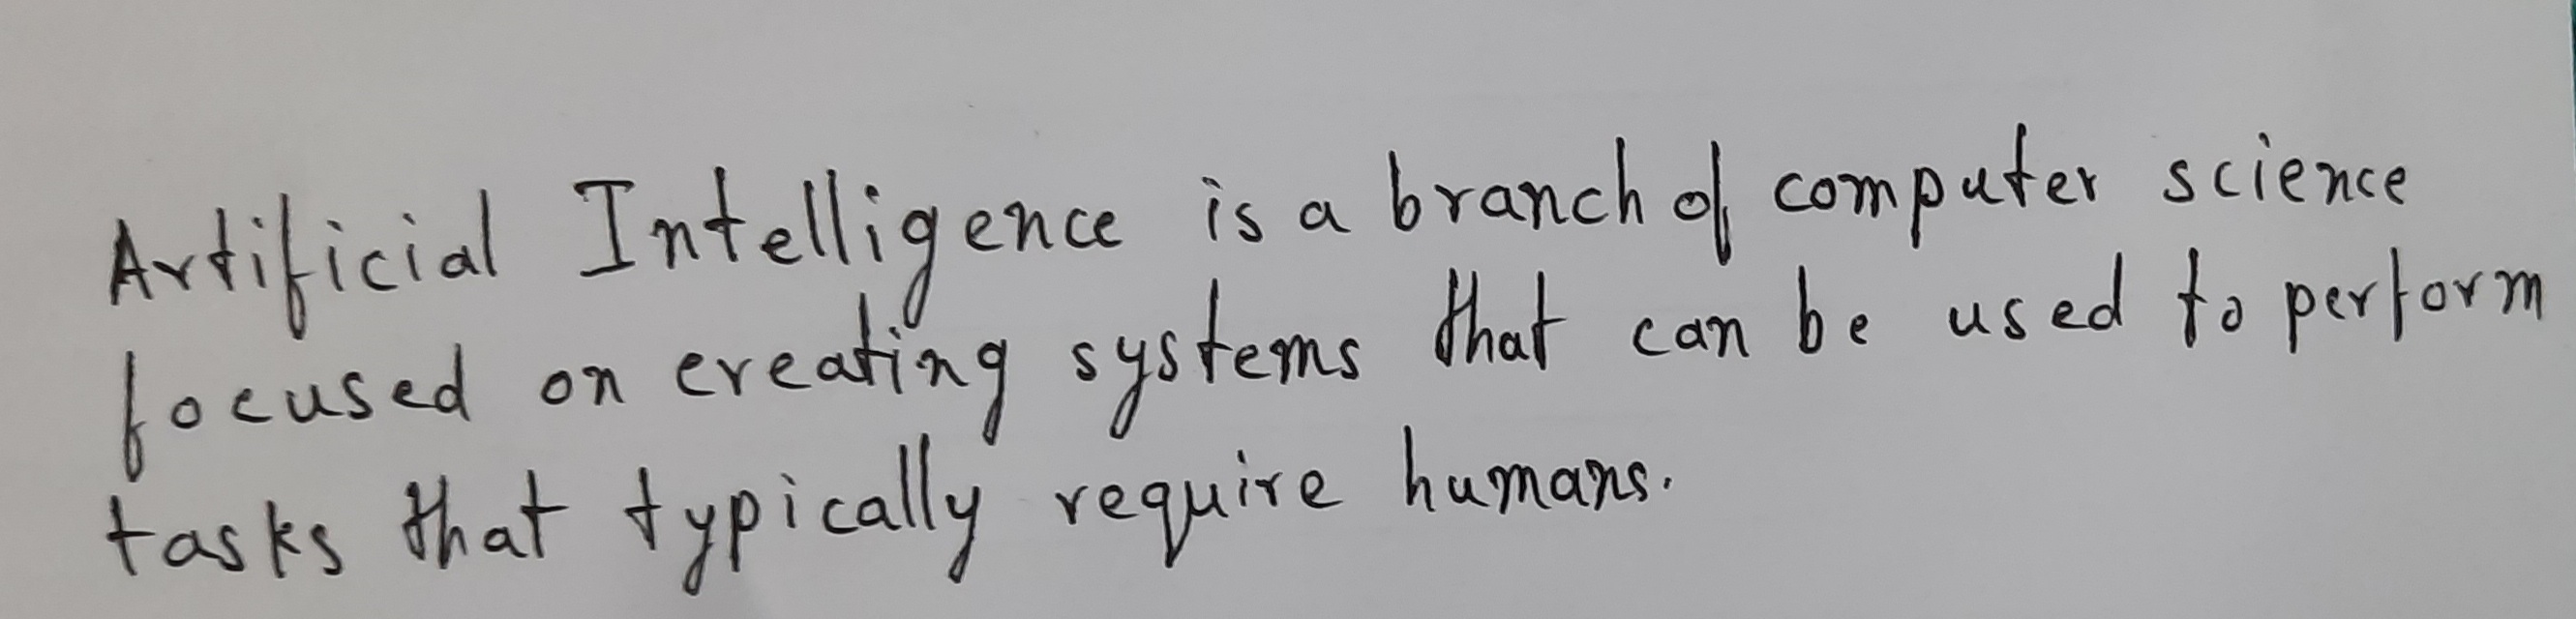 Artificial Intelligence is a branch of computer science
focused on creating systems that can be used to perform
tasks that typically require humans.